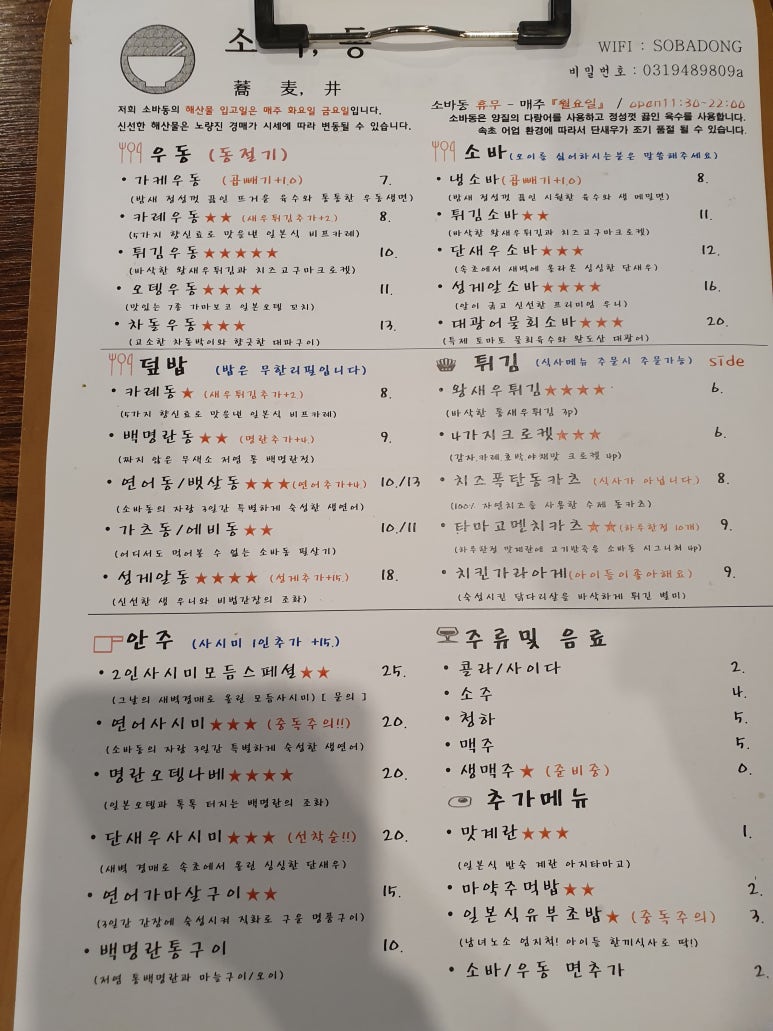 蕎 麦, 丼
WIFI : SOBADONG
비밀번호 : 0319489809a
저희 소바동의 해산물 입고일은 매주 화요일 금요일입니다.
신선한 해산물은 노량진 경매가 시세에 따라 변동될 수 있습니다.
소바동 휴무 - 매주 『월요일』 / open11:30-22:00
소바동은 양질의 다랑어를 사용하고 정성껏 끓인 육수를 사용합니다.
속초 어업 환경에 따라서 단새우가 조기 품절 될 수 있습니다.
우동 (동절기)
• 가케우동 (곱빼기+1.0) 7.
(밤새 정성껏 끓인 뜨거운 육수와 통통한 우동생면)
• 카레우동★★ (새우튀김추가+2) 8.
(5가지 향신료로 맛을낸 일본식 비프카레)
• 튀김우동★★★★★ 10.
(바삭한 왕새우튀김과 치즈고구마크로켓)
• 오뎅우동★★★★ 11.
(맛있는 7종 가마보코 일본오뎅 꼬치)
• 차돌우동★★★ 13.
(고소한 차돌박이와 향긋한 대파구이)
소바(오이를 싫어하시는분은 말씀해주세요)
• 냉소바(곱빼기+1.0) 8.
(밤새 정성껏 끓인 시원한 육수와 생 메밀면)
• 튀김소바★★ 11.
(바삭한 왕새우튀김과 치즈고구마크로켓)
• 단새우소바★★★ 12.
(속초에서 새벽에 올라온 싱싱한 단새우)
• 성게알소바★★★★ 16.
(알이 굵고 신선한 프리미엄 우니)
• 대광어물회소바★★★ 20.
(특제 토마토 물회육수와 완도산 대광어)
덮밥 (밥은 무한리필입니다)
• 카레동★ (새우튀김추가+2) 8.
(5가지 향신료로 맛을낸 일본식 비프카레)
• 백명란동★★ (명란추가+4.) 9.
(짜지 않은 무색소 저염 통 백명란젓)
• 연어동/뱃살동★★★(연어추가+4.) 10./13
(소바동의 자랑 3일간 특별하게 숙성한 생연어)
• 가츠동/에비동★★ 10./11
(어디서도 먹어볼 수 없는 소바동 필살기)
• 성게알동★★★★ (성게추가+15.) 18.
(신선한 생 우니와 비법간장의 조화)
튀김 (식사메뉴 주문시 주문가능) side
• 왕새우튀김★★★★ 6.
(바삭한 통새우튀김 3p)
• 4가지크로켓★★★ 6.
(감자.카레.호박야채맛 크로켓 4p)
• 치즈폭탄동카츠 (식사가 아닙니다) 8.
(100% 자연치즈를 사용한 수제 동카츠)
• 타마고멘치카츠★★(하루한정 10개) 9.
(하루한정 맛계란에 고기반죽을 소바동 시그니쳐 4p)
• 치킨가라아게(아이들이좋아해요) 9.
(숙성시킨 닭다리살을 바삭하게 튀긴 별미)
안주 (사시미 1인추가 +15.)
• 2인사시미모듬스페셜★★ 25.
(그날의 새벽경매로 올린 모듬사시미) [ 문의 ]
• 연어사시미★★★ (중독주의!!) 20.
(소바동의 자랑 3일간 특별하게 숙성한 생연어)
• 명란오뎅나베★★★★ 20.
(일본오뎅과 톡톡 터지는 백명란의 조화)
• 단새우사시미★★★ (선착순!!) 20.
(새벽 경매로 속초에서 올린 싱싱한 단새우)
• 연어가마살구이★★ 15.
(3일간 간장에 숙성시켜 직화로 구운 명품구이)
• 백명란통구이 10.
(저염 통백명란과 마늘구이/오이)
주류및 음료
• 콜라/사이다 2.
• 소주 4.
• 청하 5.
• 맥주 5.
• 생맥주★ (준비중) 0.
추가메뉴
• 맛계란★★★ 1.
(일본식 반숙 계란 아지타마고)
• 마약주먹밥★★ 2.
• 일본식유부초밥★ (중독주의) 3.
(남녀노소 엄지척! 아이들 한끼식사로 딱!)
• 소바/우동 면추가 2.